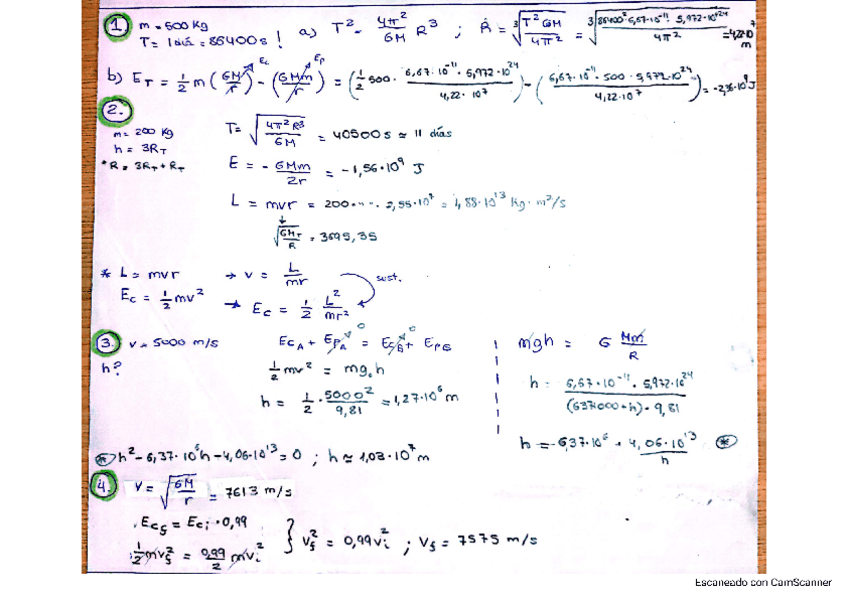 1. m = 500 Kg
T = 1 día = 86400 s !
a) T² = 4π²/GM R³ ; R = ∛(T² GM / 4π²) = ∛(86400² · 6,67·10⁻¹¹ · 5,972·10²⁴ / 4π²) = m
b) E_T = ½ m (GM/r) - (GMm/r) = (½ 500 · 6,67·10⁻¹¹ · 5,972·10²⁴ / 4,22·10⁷) - (6,67·10⁻¹¹ · 500 · 5,972·10²⁴ / 4,22·10⁷) = J
Ec Ep
2.
m = 200 Kg
h = 3R_T
*R = 3R_T + R_T
T = √(4π²R³ / GM) = 40500 s ≈ 11 días
E = - GMm/2r = -1,56·10⁹ J
L = mvr = 200 · · 2,55·10⁷ = 1,88·10¹³ Kg·m²/s
√(GM_T / R) = 3695,35
* L = mvr → v = L/mr
sust.
Ec = ½ mv² → Ec = ½ L²/mr²
3. v = 5000 m/s
h?
Ec_A + Ep_A⁰ = Ec_B⁰ + Ep_B
½ mv² = mg₀h
h = ½ · 5000²/9,81 = 1,27·10⁶ m
mgh = G Mm/R
h = 6,67·10⁻¹¹ · 5,972·10²⁴ / (637000+h) · 9,81
h = -6,37·10⁶ + 4,06·10¹³/h *
* h² - 6,37·10⁶h - 4,06·10¹³ = 0 ; h ≈ 1,03·10⁷ m
4. v = √(GM/r) = 7613 m/s
Ec_f = Ec_i · 0,99
½ mv_f² = 0,99/2 mv_i² } v_f² = 0,99v_i² ; V_f = 7575 m/s
Escaneado con CamScanner